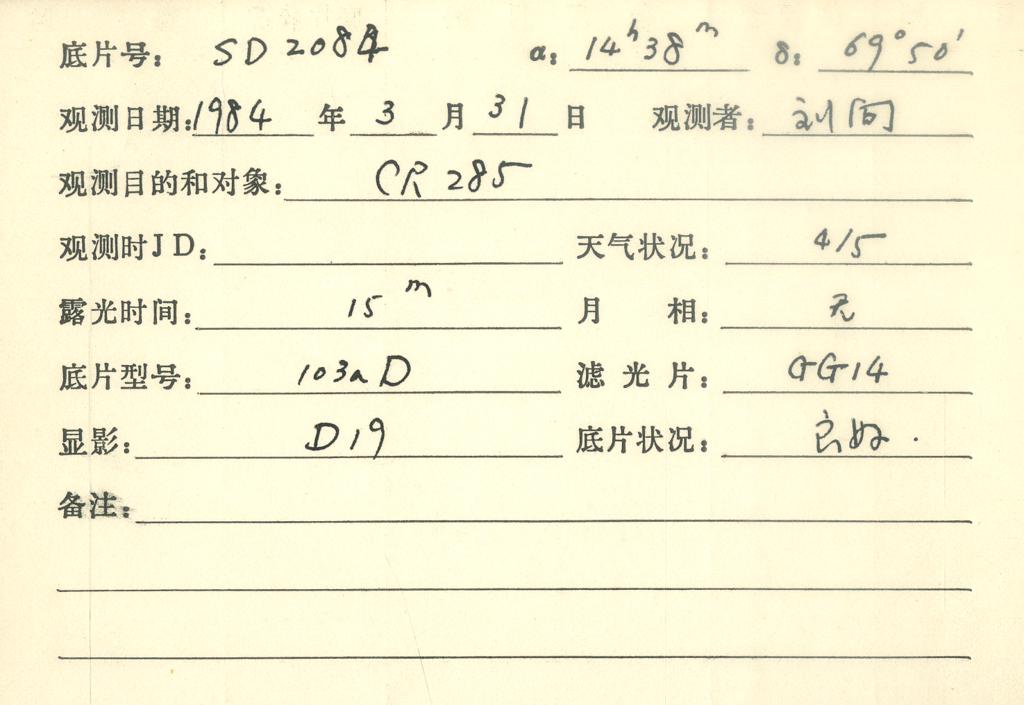 底片号: SD2084 α: 14ʰ38ᵐ δ: 69°50′
观测日期: 1984 年 3 月 31 日 观测者: 刘
观测目的和对象: CR 285
观测时JD: 天气状况: 4/5
露光时间: 15ᵐ 月 相: 无
底片型号: 103aD 滤光片: GG14
显影: D19 底片状况: 良好.
备注: